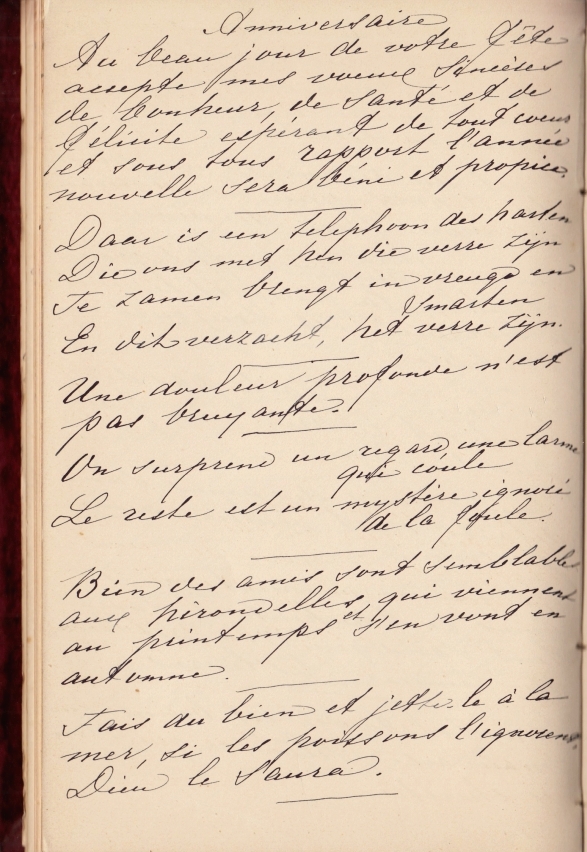 Anniversaire
Au beau jour de votre fête
accepte mes voeux sincères
de bonheur, de santé et de
félicite espérant de tout coeur
et sous tous rapport l'année
nouvelle sera béni et propice.
Daar is een telephoon des harten
Die ons met hen die verre zijn
Te zamen brengt in vreugd en
smarten
En dit verzacht, het verre zijn.
Une douleur profonde n'est
pas bruyante.
On surprend un regard, une larme
qui coule
Le reste est un mystère ignoré
de la foule.
Bien des amis sont semblables
aux hirondelles, qui viennent
au printemps et s'en vont en
automne.
Fais du bien et jette le à la
mer, si les poissons l'ignorent,
Dieu le saura.